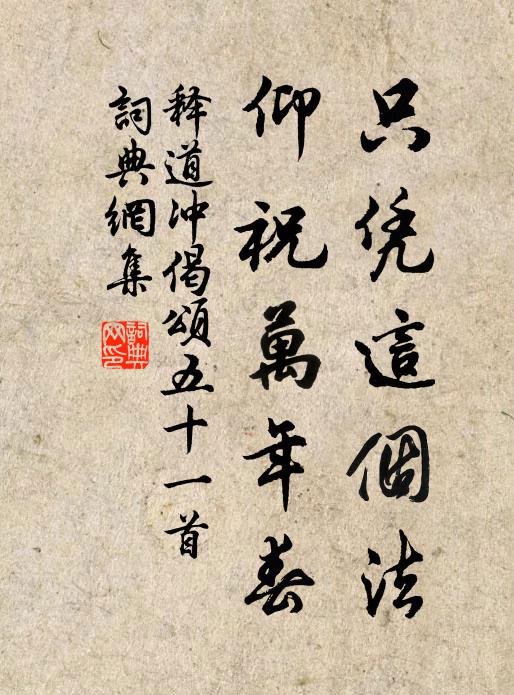 只凭這個法
仰祝萬年春
释道冲偈頌五十一首
詞典網集
詞典网印